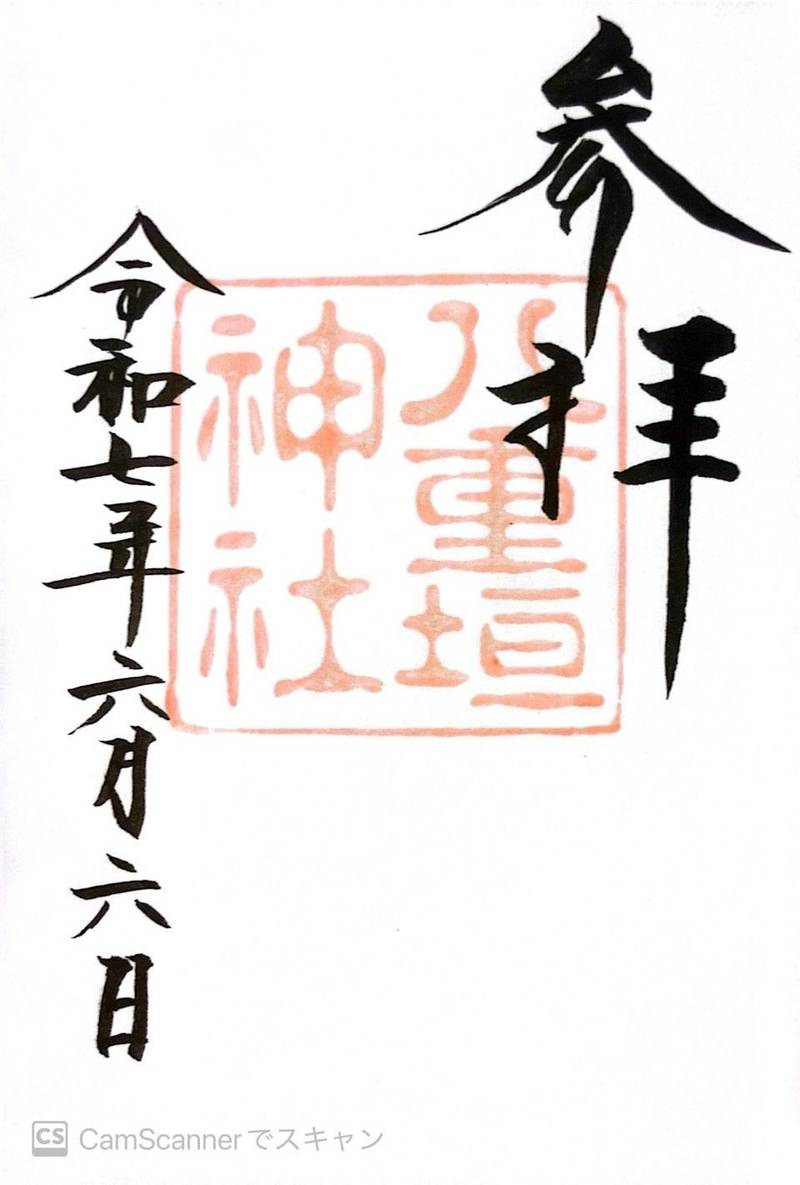 参拝
八重垣
神社
令和七年六月六日
CS CamScannerでスキャン